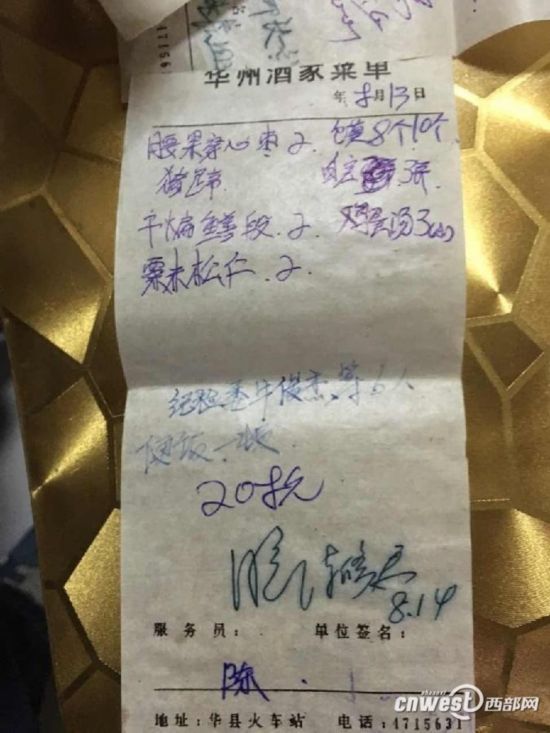 华州酒家菜单
年 8月13日
腰果穿心枣 2. 馍8个10个
猪蹄 3瓶
干煸鳝段. 2. 鸡蛋汤3
粟米松仁. 2
纪检委牛俊杰等6人
便饭一次.
208元
8.14
服务员: 单位签名:
陈
地址:华县火车站 电话:4715631
cnwest 西部网